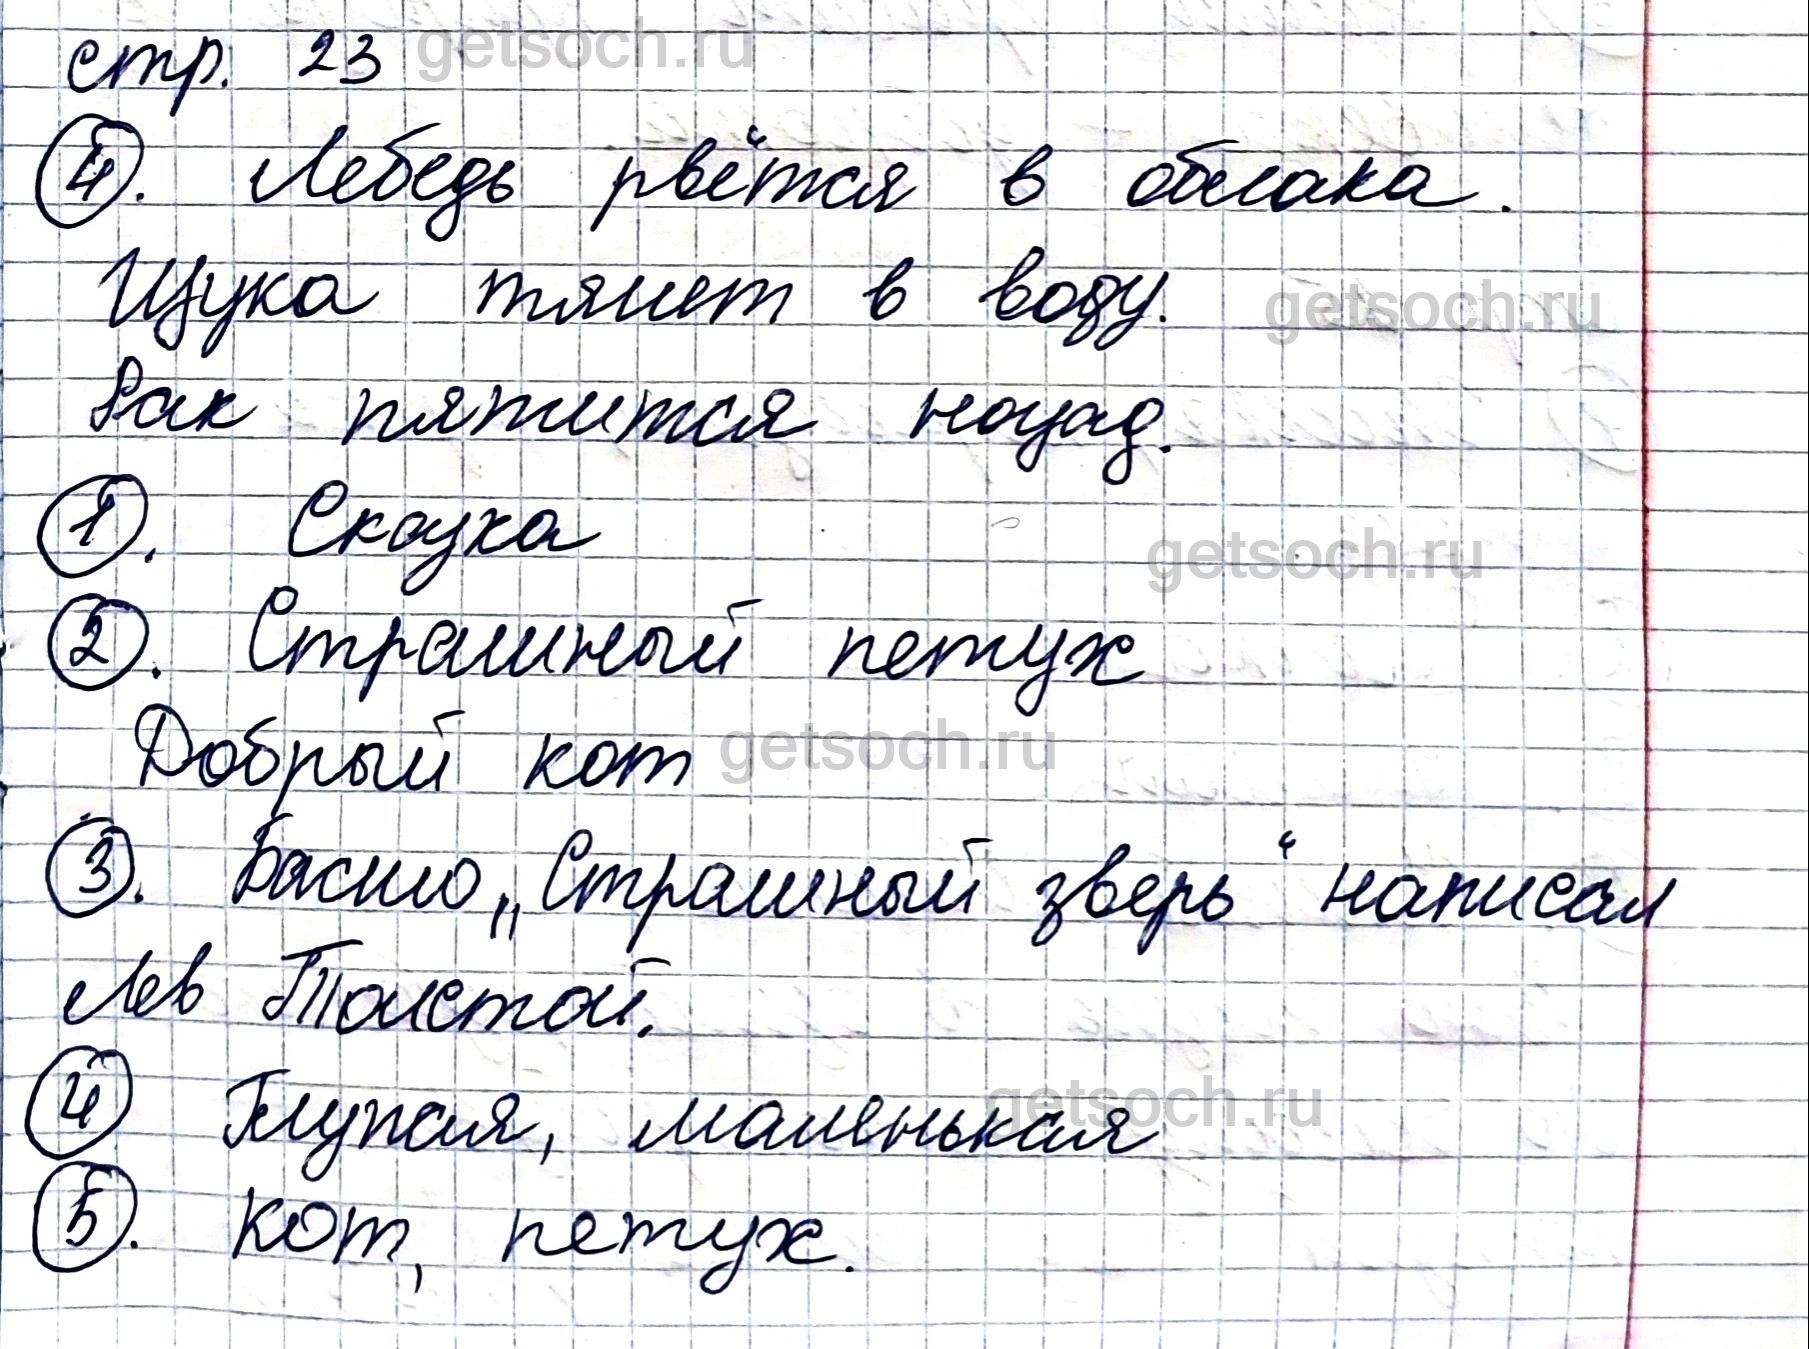 стр. 23 getsoch.ru
4. Лебедь рвётся в облака.
Щука тянет в воду. getsoch.ru
Рак пятится назад.
1. Сказка
getsoch.ru
2. Страшный петух
Добрый кот getsoch.ru
3. Басню „Страшный зверь“ написал
Лев Толстой.
getsoch.ru
4 Глупая, маленькая
5. Кот, петух.